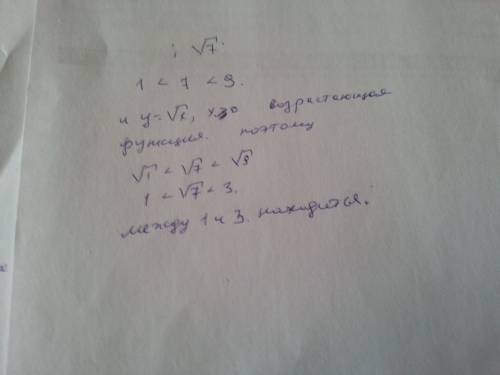 ; √7.
1 < 7 < 9.
и y=√x, x≥0 возрастающая
функция. поэтому
√1 < √7 < √9
1 < √7 < 3.
между 1 и 3. находиться.